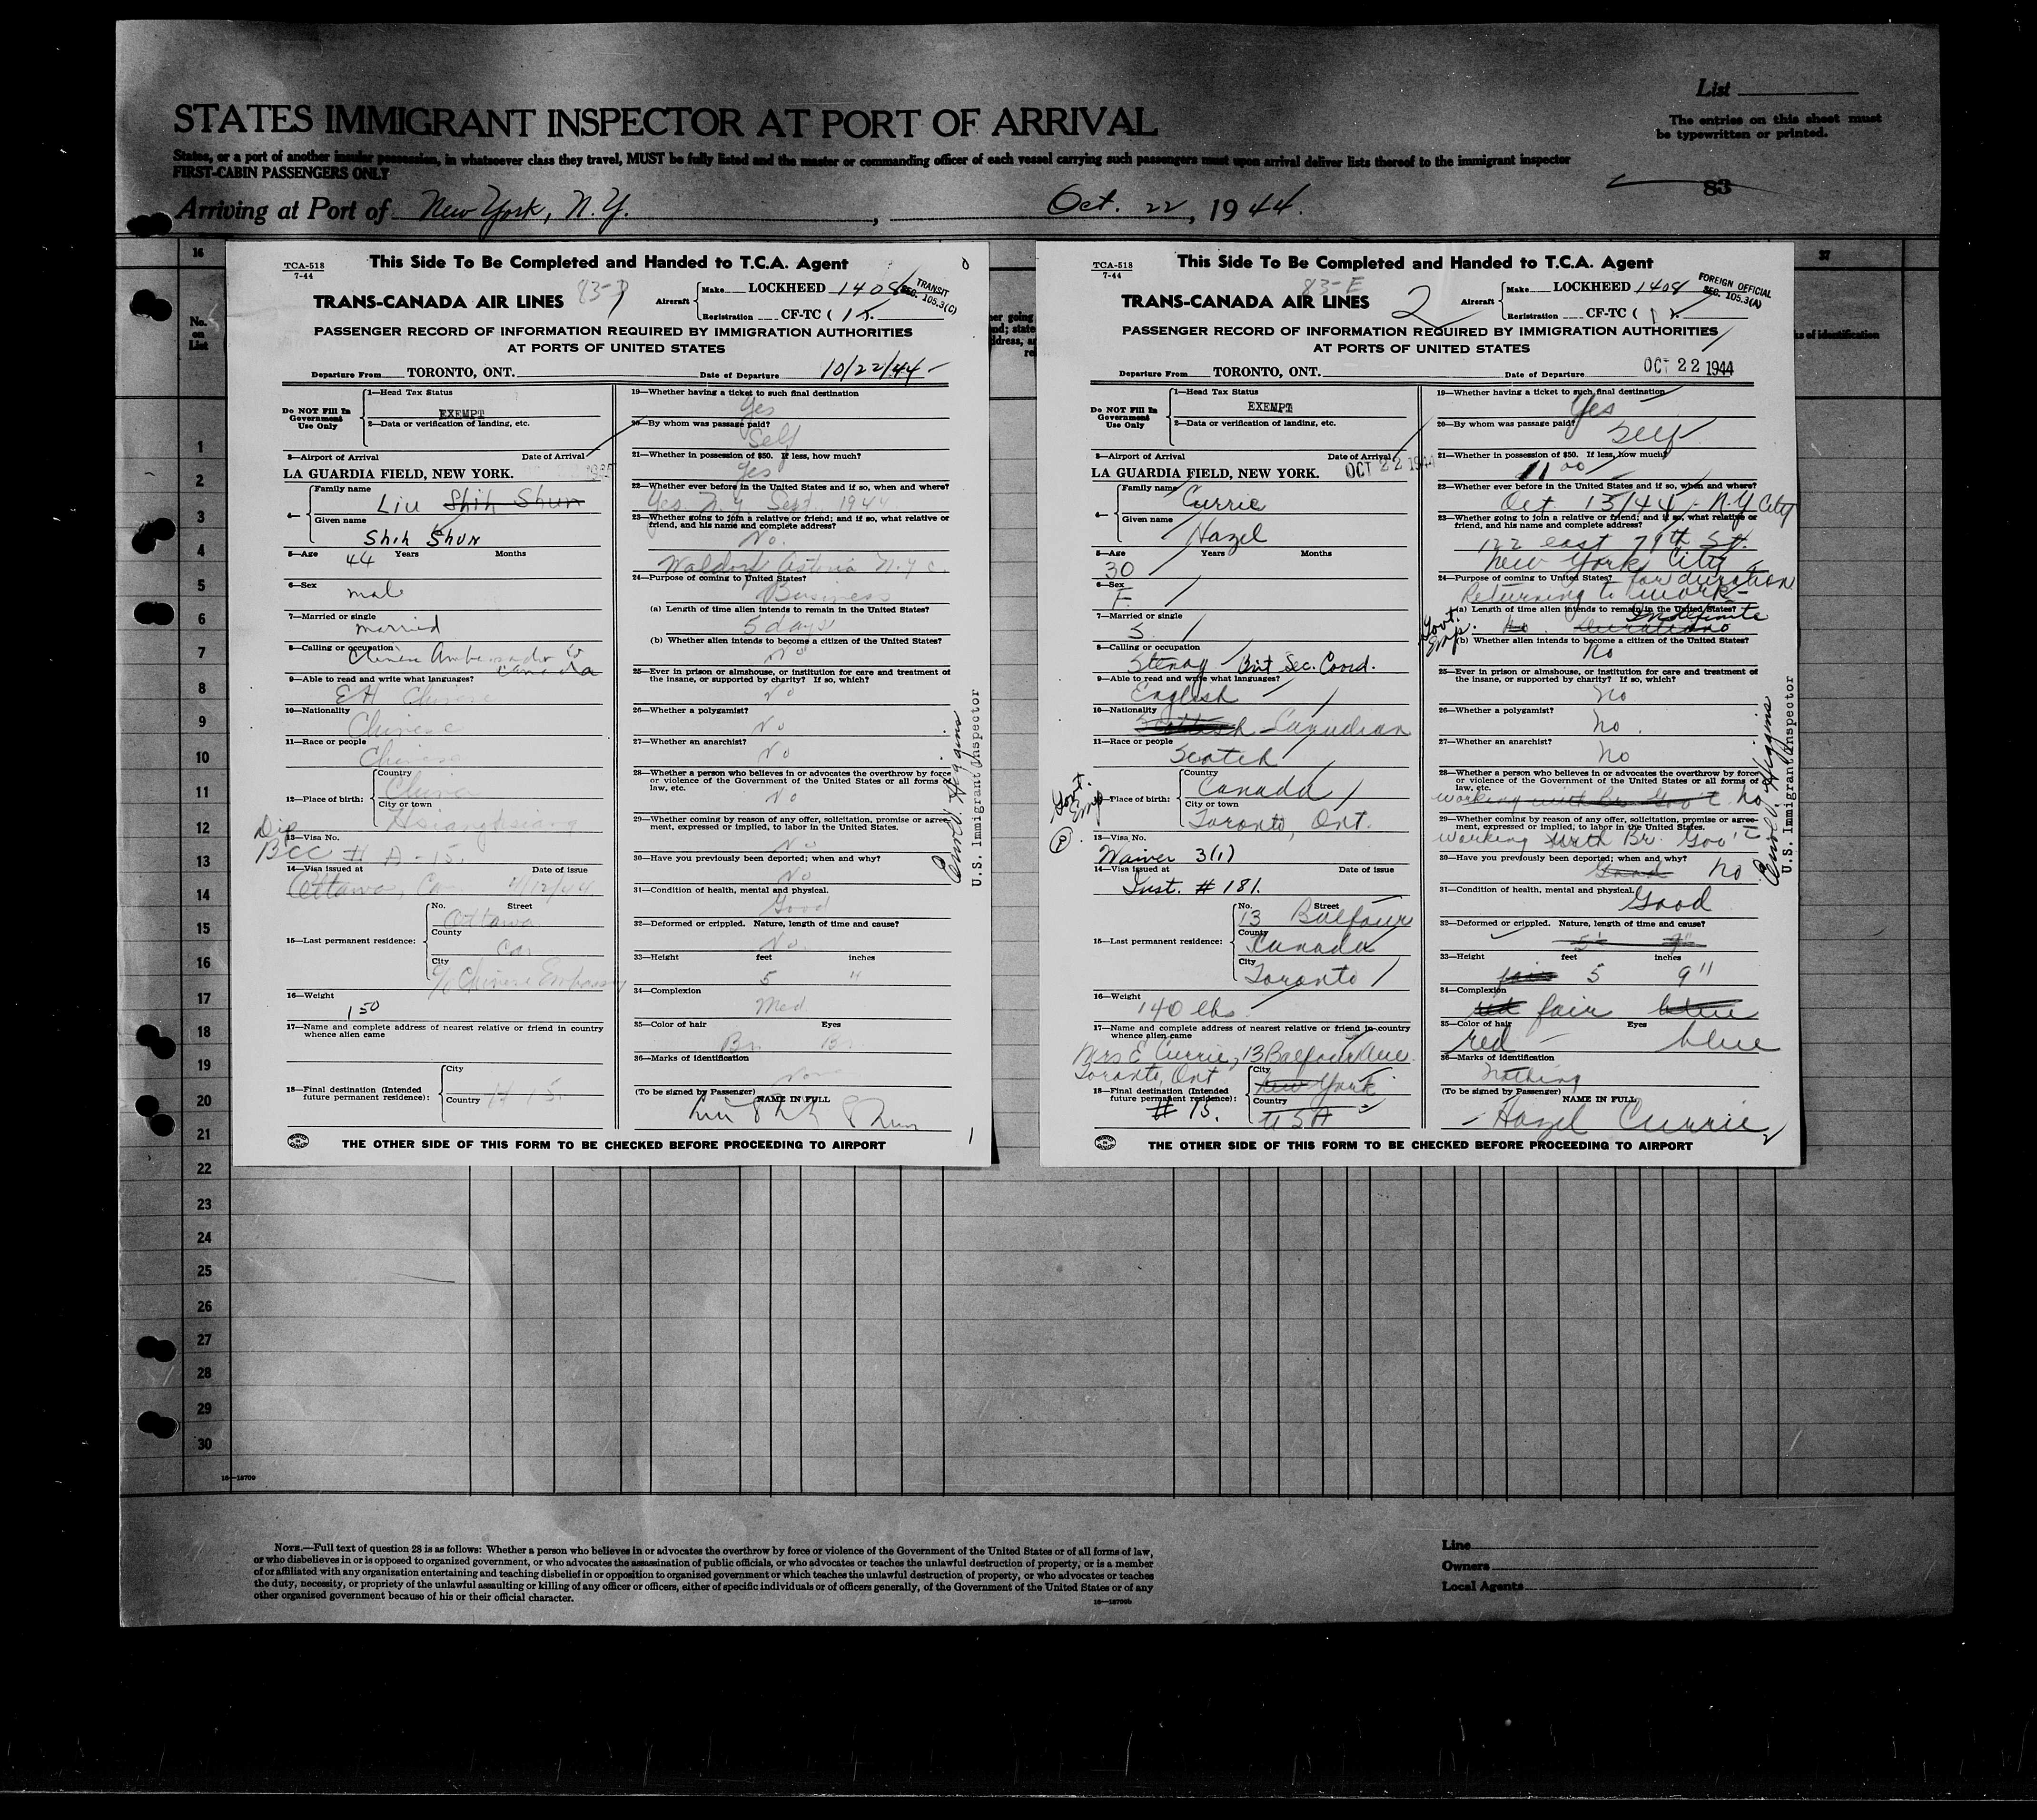 List
STATES IMMIGRANT INSPECTOR AT PORT OF ARRIVAL
The entries on this sheet must
be typewritten or printed.
States, or a port of another insular possession, in whatsoever class they travel, MUST be fully listed and the master or commanding officer of each vessel carrying such passengers must upon arrival deliver lists thereof to the immigrant inspector
FIRST-CABIN PASSENGERS ONLY
83
Arriving at Port of New York, N.Y., Oct. 22, 1944.
16
37
No. on List
ks of identification
TCA-518
7-44
This Side To Be Completed and Handed to T.C.A. Agent
TRANS-CANADA AIR LINES
Aircraft
Make LOCKHEED 1408
Registration CF-TC (
TRANSIT
SEC. 105.3(C)
PASSENGER RECORD OF INFORMATION REQUIRED BY IMMIGRATION AUTHORITIES
AT PORTS OF UNITED STATES
Departure From TORONTO, ONT. Date of Departure 10/22/44
Do NOT Fill In
Government
Use Only
1—Head Tax Status
EXEMPT
2—Data or verification of landing, etc.
3—Airport of Arrival Date of Arrival
LA GUARDIA FIELD, NEW YORK.
4—
Family name
Liu Shih Shun
Given name
Shih Shun
5—Age Years Months
44
6—Sex
male
7—Married or single
married
8—Calling or occupation
Chinese Ambassador to
Canada
9—Able to read and write what languages?
Chinese
10—Nationality
Chinese
11—Race or people
Chinese
12—Place of birth:
Country
China
City or town
Hsianghsiang
Dip
13—Visa No.
BCC # A-15.
14—Visa issued at Date of issue
Ottawa, Ca.
15—Last permanent residence:
No. Street
Ottawa
County
Ca.
City
c/o Chinese Embassy
16—Weight
150
17—Name and complete address of nearest relative or friend in country
whence alien came
18—Final destination (Intended
future permanent residence):
City
Country
# 15.
19—Whether having a ticket to such final destination
Yes
20—By whom was passage paid?
Self
21—Whether in possession of $50. If less, how much?
Yes
22—Whether ever before in the United States and if so, when and where?
Yes N.Y. Sept. 1944
23—Whether going to join a relative or friend; and if so, what relative or
friend, and his name and complete address?
No.
Waldorf Astoria N.Y.C.
24—Purpose of coming to United States?
Business
(a) Length of time alien intends to remain in the United States?
5 days
(b) Whether alien intends to become a citizen of the United States?
No
25—Ever in prison or almshouse, or institution for care and treatment of
the insane, or supported by charity? If so, which?
No
26—Whether a polygamist?
No
27—Whether an anarchist?
No
28—Whether a person who believes in or advocates the overthrow by force
or violence of the Government of the United States or all forms of
law, etc.
No
29—Whether coming by reason of any offer, solicitation, promise or agree-
ment, expressed or implied, to labor in the United States.
No
30—Have you previously been deported; when and why?
No
31—Condition of health, mental and physical.
Good
32—Deformed or crippled. Nature, length of time and cause?
No.
33—Height feet inches
5
34—Complexion
Med
35—Color of hair Eyes
Br. B.
36—Marks of identification
None
(To be signed by Passenger) NAME IN FULL
U.S. Immigrant Inspector
THE OTHER SIDE OF THIS FORM TO BE CHECKED BEFORE PROCEEDING TO AIRPORT
1
TCA-518
7-44
This Side To Be Completed and Handed to T.C.A. Agent
83-E
TRANS-CANADA AIR LINES
2
Aircraft
Make LOCKHEED 1408
Registration CF-TC (
FOREIGN OFFICIAL
SEC. 105.3(A)
PASSENGER RECORD OF INFORMATION REQUIRED BY IMMIGRATION AUTHORITIES
AT PORTS OF UNITED STATES
Departure From TORONTO, ONT. Date of Departure OCT 22 1944
Do NOT Fill In
Government
Use Only
1—Head Tax Status
EXEMPT
2—Data or verification of landing, etc.
3—Airport of Arrival Date of Arrival
LA GUARDIA FIELD, NEW YORK. OCT 22 1944
4—
Family name
Currie
Given name
Hazel
5—Age Years Months
30
6—Sex
F.
7—Married or single
S.
8—Calling or occupation
Stenog Brit Sec. Coord.
9—Able to read and write what languages?
English
10—Nationality
Scottish Canadian
11—Race or people
Scotch
Govt. Emp
12—Place of birth:
Country
Canada
City or town
Toronto, Ont.
13—Visa No.
Waiver 3(1)
14—Visa issued at Date of issue
Inst. # 181.
15—Last permanent residence:
No. Street
13 Balfour
County
Canada
City
Toronto
16—Weight
140 lbs
17—Name and complete address of nearest relative or friend in country
whence alien came
Mrs E Currie, 13 Balfour Ave.
Toronto, Ont
18—Final destination (Intended
future permanent residence):
# 15.
City
New York
Country
USA
19—Whether having a ticket to such final destination
Yes
20—By whom was passage paid?
Self
21—Whether in possession of $50. If less, how much?
11 00
22—Whether ever before in the United States and if so, when and where?
Oct 13/44 - N.Y City
23—Whether going to join a relative or friend; and if so, what relative or
friend, and his name and complete address?
122 east 79th St.
New York City
24—Purpose of coming to United States? for duration
Returning to work
(a) Length of time alien intends to remain in the United States?
Indefinite
Govt. Emp.
(b) Whether alien intends to become a citizen of the United States?
No
25—Ever in prison or almshouse, or institution for care and treatment of
the insane, or supported by charity? If so, which?
no
26—Whether a polygamist?
no.
27—Whether an anarchist?
no
28—Whether a person who believes in or advocates the overthrow by force
or violence of the Government of the United States or all forms of
law, etc.
working with Br. Gov't. no
29—Whether coming by reason of any offer, solicitation, promise or agree-
ment, expressed or implied, to labor in the United States.
working with Br. Gov't
30—Have you previously been deported; when and why?
Good no
31—Condition of health, mental and physical.
Good
32—Deformed or crippled. Nature, length of time and cause?
5' 9"
33—Height feet inches
fair 5 9"
34—Complexion
red fair blue
35—Color of hair Eyes
red blue
36—Marks of identification
nothing
(To be signed by Passenger) NAME IN FULL
Hazel Currie
U.S. Immigrant Inspector
THE OTHER SIDE OF THIS FORM TO BE CHECKED BEFORE PROCEEDING TO AIRPORT
2
1
2
3
4
5
6
7
8
9
10
11
12
13
14
15
16
17
18
19
20
21
22
23
24
25
26
27
28
29
30
16—18709
NOTE.—Full text of question 28 is as follows: Whether a person who believes in or advocates the overthrow by force or violence of the Government of the United States or of all forms of law,
or who disbelieves in or is opposed to organized government, or who advocates the assassination of public officials, or who advocates or teaches the unlawful destruction of property, or is a member
of or affiliated with any organization entertaining and teaching disbelief in or opposition to organized government or which teaches the unlawful destruction of property, or who advocates or teaches
the duty, necessity, or propriety of the unlawful assaulting or killing of any officer or officers, either of specific individuals or of officers generally, of the Government of the United States or of any
other organized government because of his or their official character.
16—18709b
Line
Owners
Local Agents